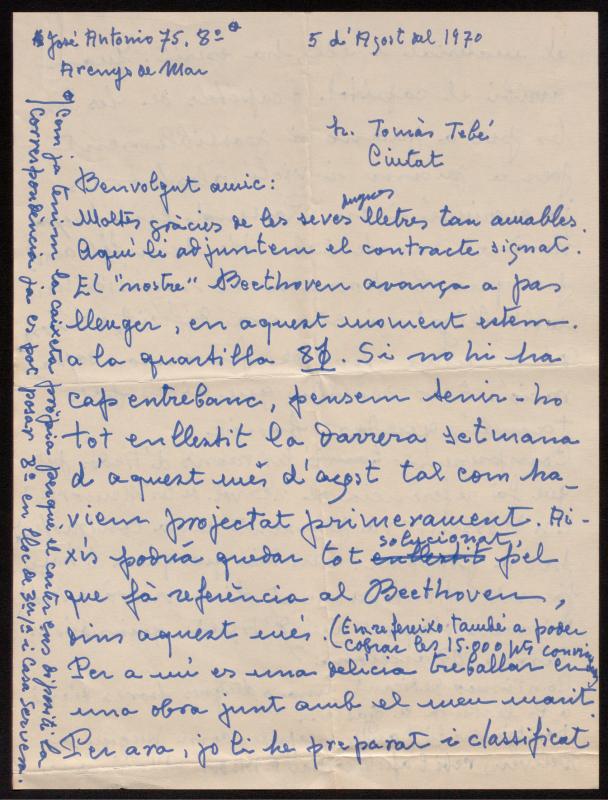 * José Antonio 75, 8º *
Arenys de Mar
5 d'Agost del 1970
Sr. Tomàs Tebé
Ciutat
Benvolgut amic:
Moltes gràcies de les seves lletres tan amables.
Aquí li adjuntem el contracte signat.
El "nostre" Beethoven avança a pas
lleuger, en aquest moment estem
a la quartilla 81. Si no hi ha
cap entrebanc, pensem tenir-ho
tot enllestit la darrera setmana
d'aquest mes d'agost tal com ha-
viem projectat primerament. Ai-
solucionat,
xís podrià quedar tot enllestit pel
que fà referència al Beethoven,
dins aquest més. (Em refereixo també a poder
cobrar les 15.000 pts
Per a mi es una delícia treballar en
una obra junt amb el meu marit.
Per ara, jo li he preparat i classificat
*) Com ja tenim la caixeta pròpia perque el carter ens dipositi la
correspondència ja es pot posar 8º en lloc de 3er 1ª i Casa Servera.